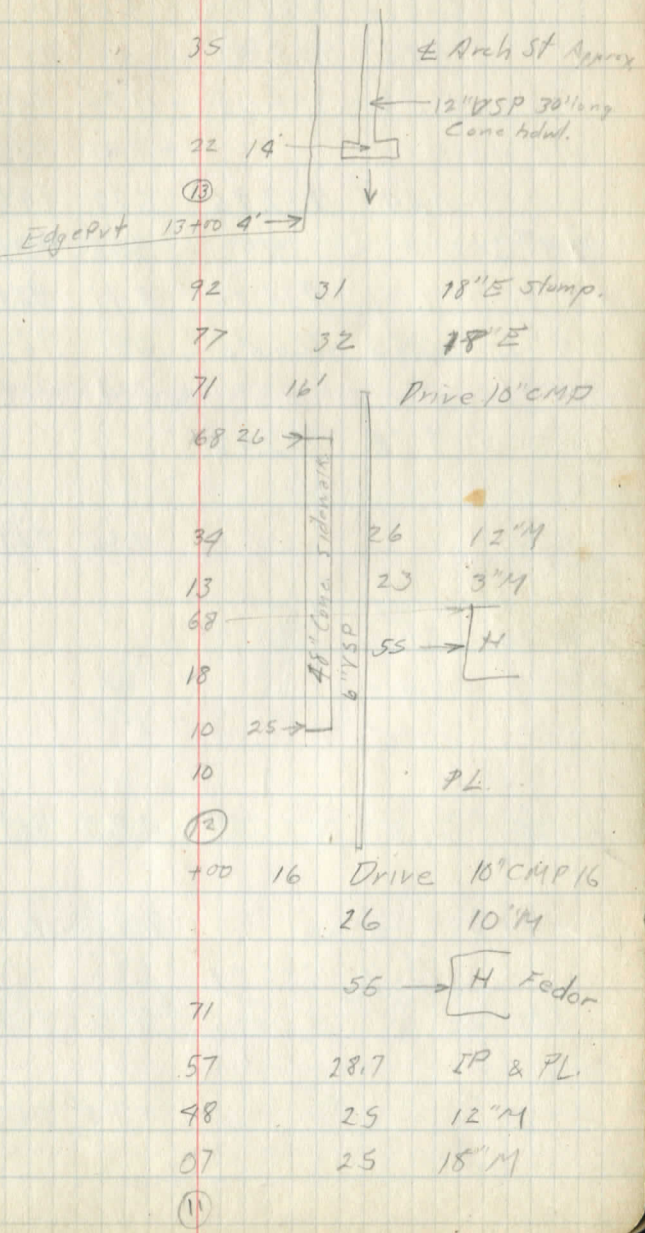 35 ℄ Arch St Approx
12"VSP 30'long
Conc hdwl.
22 14
13
Edge Pvt 13+00 4'
92 31 18"E Stump.
77 32 18"E
71 16' Drive 10"CMP
68 26
48" Conc. Sidewalk
6"VSP
34 26 12"M
13 23 3"M
68
55 H
18
10 25
10 PL.
12
+00 16 Drive 10"CMP 16
26 10"M
56 H Fedor
71
57 28.7 IP & PL.
48 25 12"M
07 25 18"M
11